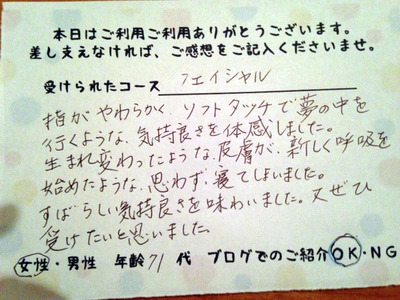 本日はご利用ご利用ありがとうございます。
差し支えなければ、ご感想をご記入くださいませ。
受けられたコース フェイシャル
指がやわらかく、ソフトタッチで夢の中を
行くような、気持良さを体感しました。
生まれ変わったような、皮膚が、新しく呼吸を
始めたような、思わず、寝てしまいました。
すばらしい気持良さを味わいました。又ぜひ
受けたいと思いました。
女性・男性 年齢71代 ブログでのご紹介OK・NG